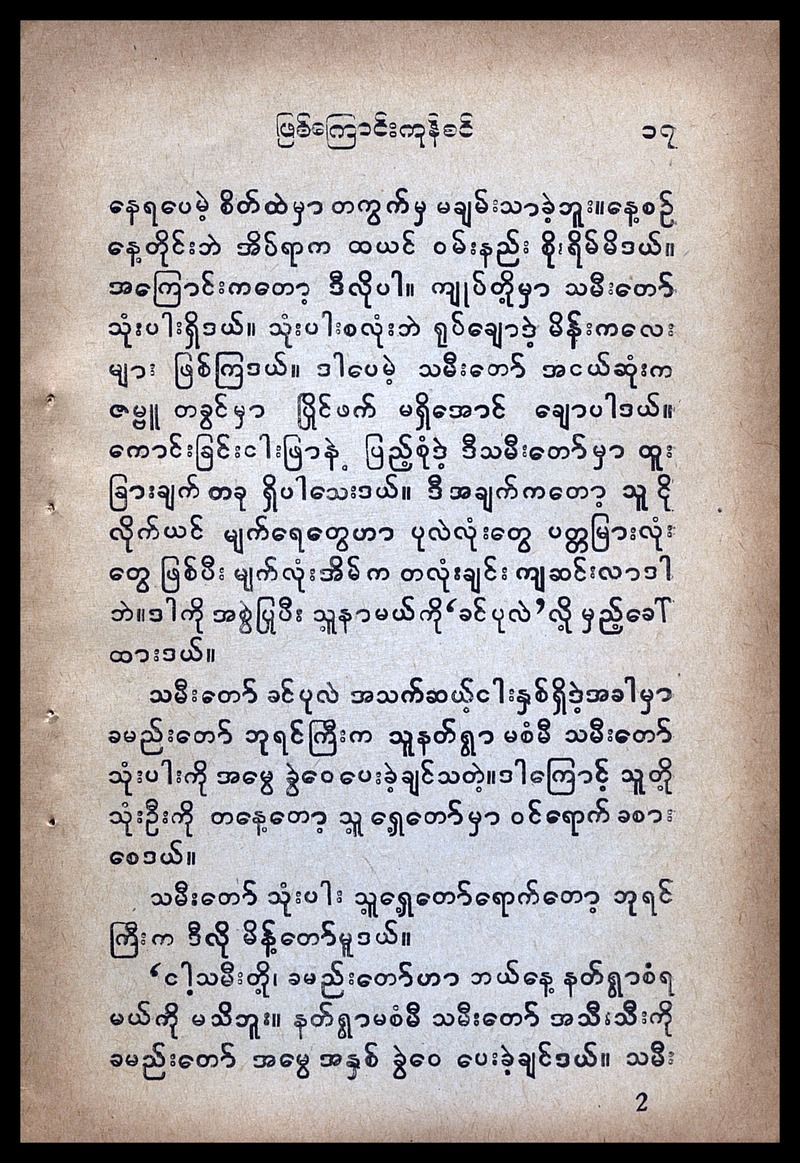 ဖြစ်ကြောင်းကုန်စင် ၁၇
နေရပေမဲ့ စိတ်ထဲမှာ တကွက်မှ မချမ်းသာခဲ့ဘူး။နေ့စဉ်
နေ့တိုင်းဘဲ အိပ်ရာက ထယင် ဝမ်းနည်း စိုးရိမ်မိဒယ်။
အကြောင်းကတော့ ဒီလိုပါ။ ကျုပ်တို့မှာ သမီးတော်
သုံးပါးရှိဒယ်။ သုံးပါးစလုံးဘဲ ရုပ်ချောဒဲ့ မိန်းကလေး
များ ဖြစ်ကြဒယ်။ ဒါပေမဲ့ သမီးတော် အငယ်ဆုံးက
ဇမ္ဗူ တခွင်မှာ ပြိုင်ဖက် မရှိအောင် ချောပါဒယ်။
ကောင်းခြင်းငါးဖြာနဲ့ ပြည့်စုံဒဲ့ ဒီသမီးတော်မှာ ထူး
ခြားချက် တခု ရှိပါသေးဒယ်။ ဒီအချက်ကတော့ သူ ငို
လိုက်ယင် မျက်ရေတွေဟာ ပုလဲလုံးတွေ ပတ္တမြားလုံး
တွေ ဖြစ်ပီး မျက်လုံးအိမ်က တလုံးချင်း ကျဆင်းလာဒါ
ဘဲ။ဒါကို အစွဲပြုပီး သူ့နာမယ်ကို‘ခင်ပုလဲ’လို့ မှည့်ခေါ်
ထားဒယ်။
သမီးတော် ခင်ပုလဲ အသက်ဆယ့်ငါးနှစ်ရှိဒဲ့အခါမှာ
ခမည်းတော် ဘုရင်ကြီးက သူနတ်ရွာ မစံမီ သမီးတော်
သုံးပါးကို အမွေ ခွဲဝေပေးခဲ့ချင်သတဲ့။ဒါကြောင့် သူတို့
သုံးဦးကို တနေ့တော့ သူ့ရှေ့တော်မှာ ဝင်ရောက် ခစား
စေဒယ်။
သမီးတော် သုံးပါး သူ့ရှေ့တော်ရောက်တော့ ဘုရင်
ကြီးက ဒီလို မိန့်တော်မူဒယ်။
‘ငါ့သမီးတို့၊ ခမည်းတော်ဟာ ဘယ်နေ့ နတ်ရွာစံရ
မယ်ကို မသိဘူး။ နတ်ရွာမစံမီ သမီးတော် အသီးသီးကို
ခမည်းတော် အမွေအနှစ် ခွဲဝေ ပေးခဲ့ချင်ဒယ်။ သမီး
2